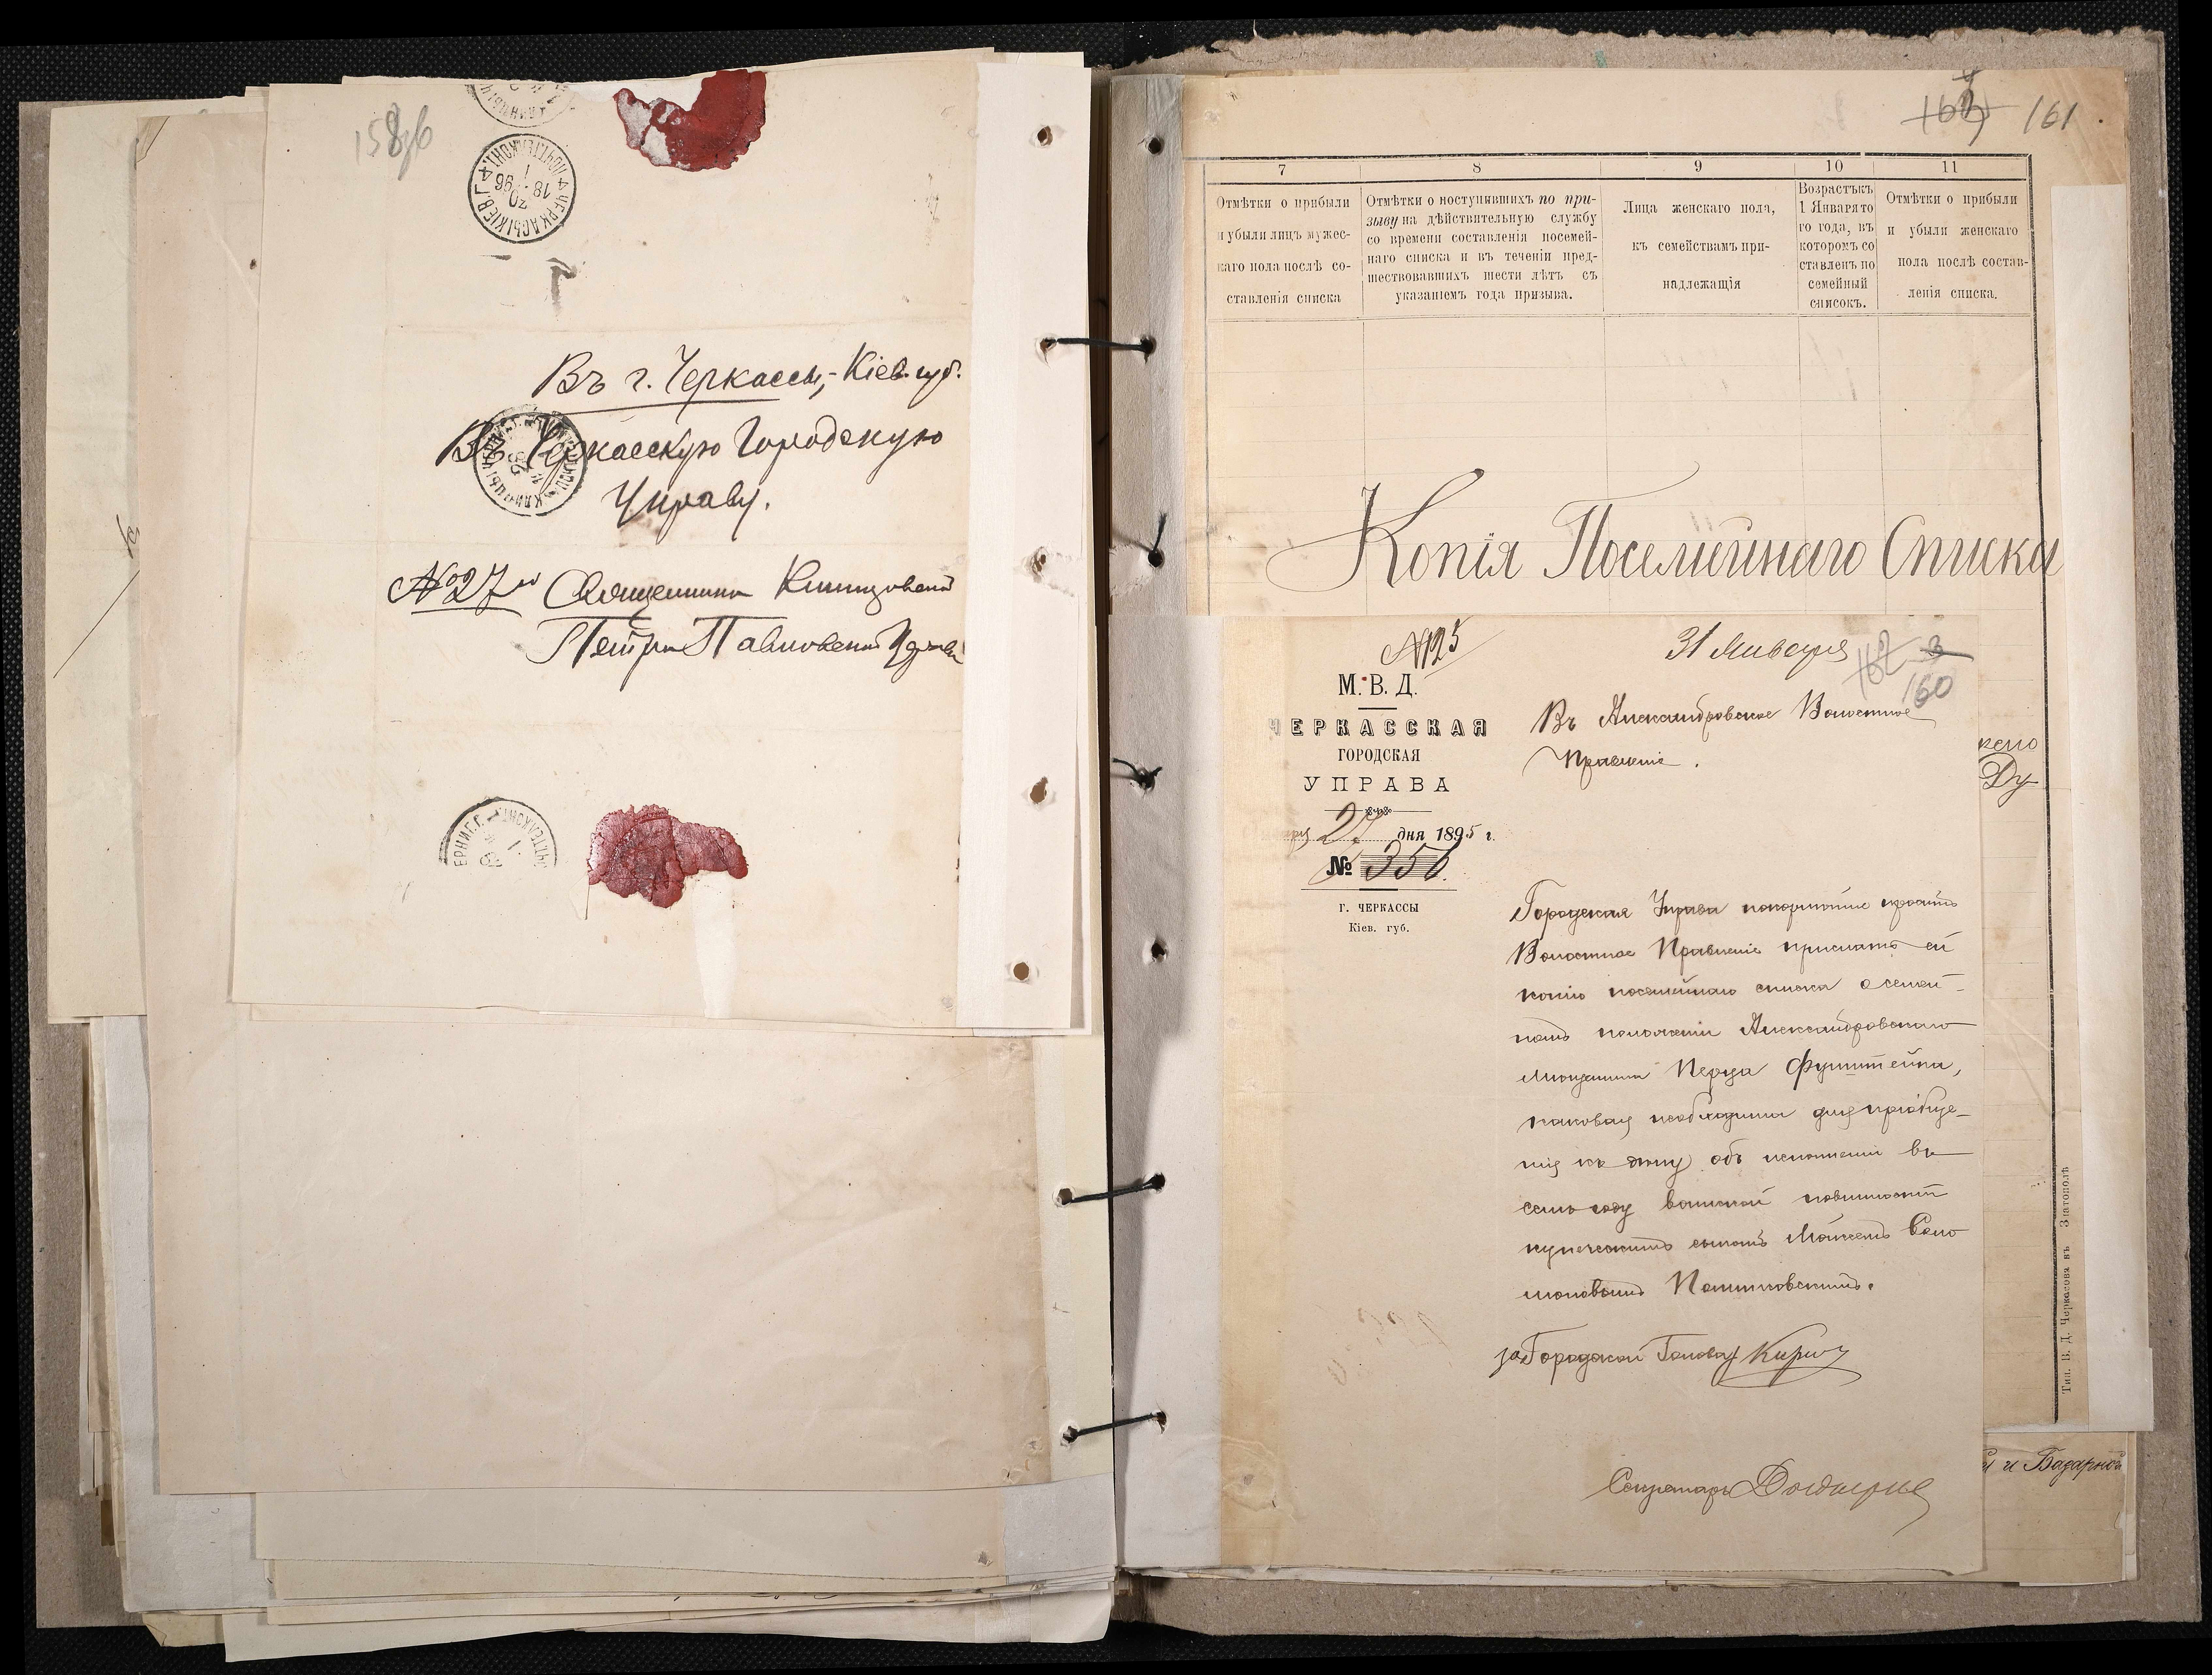 158об
ЧЕРКАСЫ КІЕВ. Г.
ПОЧТ. ТЕЛ. КОНТ.
20
18 96
1
Въ г. Черкассы, Кіев. губ.
Въ Черкасскую Городскую
Управу.
№ 27й Священника Клинцовской
Петро Павловской Церкви
ЕРНИГ. Г.
161
7
8
9
10
11
Отмѣтки о прибыли
и убыли лицъ мужес-
каго пола послѣ со-
ставленія списка
Отмѣтки о поступившихъ по при-
зыву на дѣйствительную службу
со времени составленія посемей-
наго списка и въ теченіи пред-
шествовавшихъ шести лѣтъ съ
указаніемъ года призыва.
Лица женскаго пола,
къ семействамъ при-
надлежащія
Возрастъ къ
1 Января то
го года, въ
которомъ со
ставленъ по
семейный
списокъ.
Отмѣтки о прибыли
и убыли женскаго
пола послѣ состав-
ленія списка.
Копія Посемейнаго Списка
№125
31 Января
160
М. В. Д.
ЧЕРКАССКАЯ
ГОРОДСКАЯ
УПРАВА
27 дня 1895 г.
№ 356.
г. ЧЕРКАССЫ
Кіев. губ.
Въ Александровское Волостное
Правленіе.
Городская Управа покорнѣйше проситъ
Волостное Правленіе прислать ей
копію посемейнаго списка о семей-
номъ положеніи Александровскаго
мѣщанина Перца Фунштейна,
каковая необходима для пріобще-
нія къ дѣлу объ исполненіи въ
семъ году воинской повинности
купеческимъ сыномъ Мойсеемъ Соло
моновымъ
за Городской Голова
Секретарь
Ду
и Базарной
Тип. В. Д. Черкасова въ Златополѣ